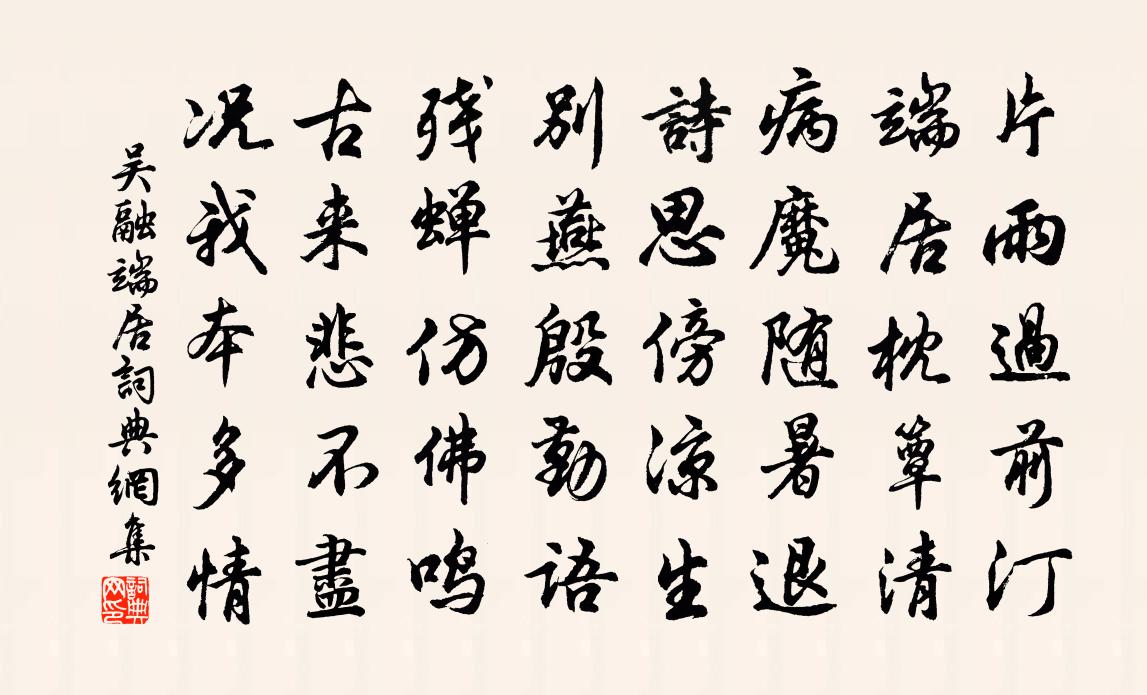 片雨過前汀
端居枕簟清
病魔随暑退
詩思傍涼生
別燕殷勤語
残蝉仿佛鸣
古来悲不盡
况我本多情
吴融端居詞典網集
詞典
网印